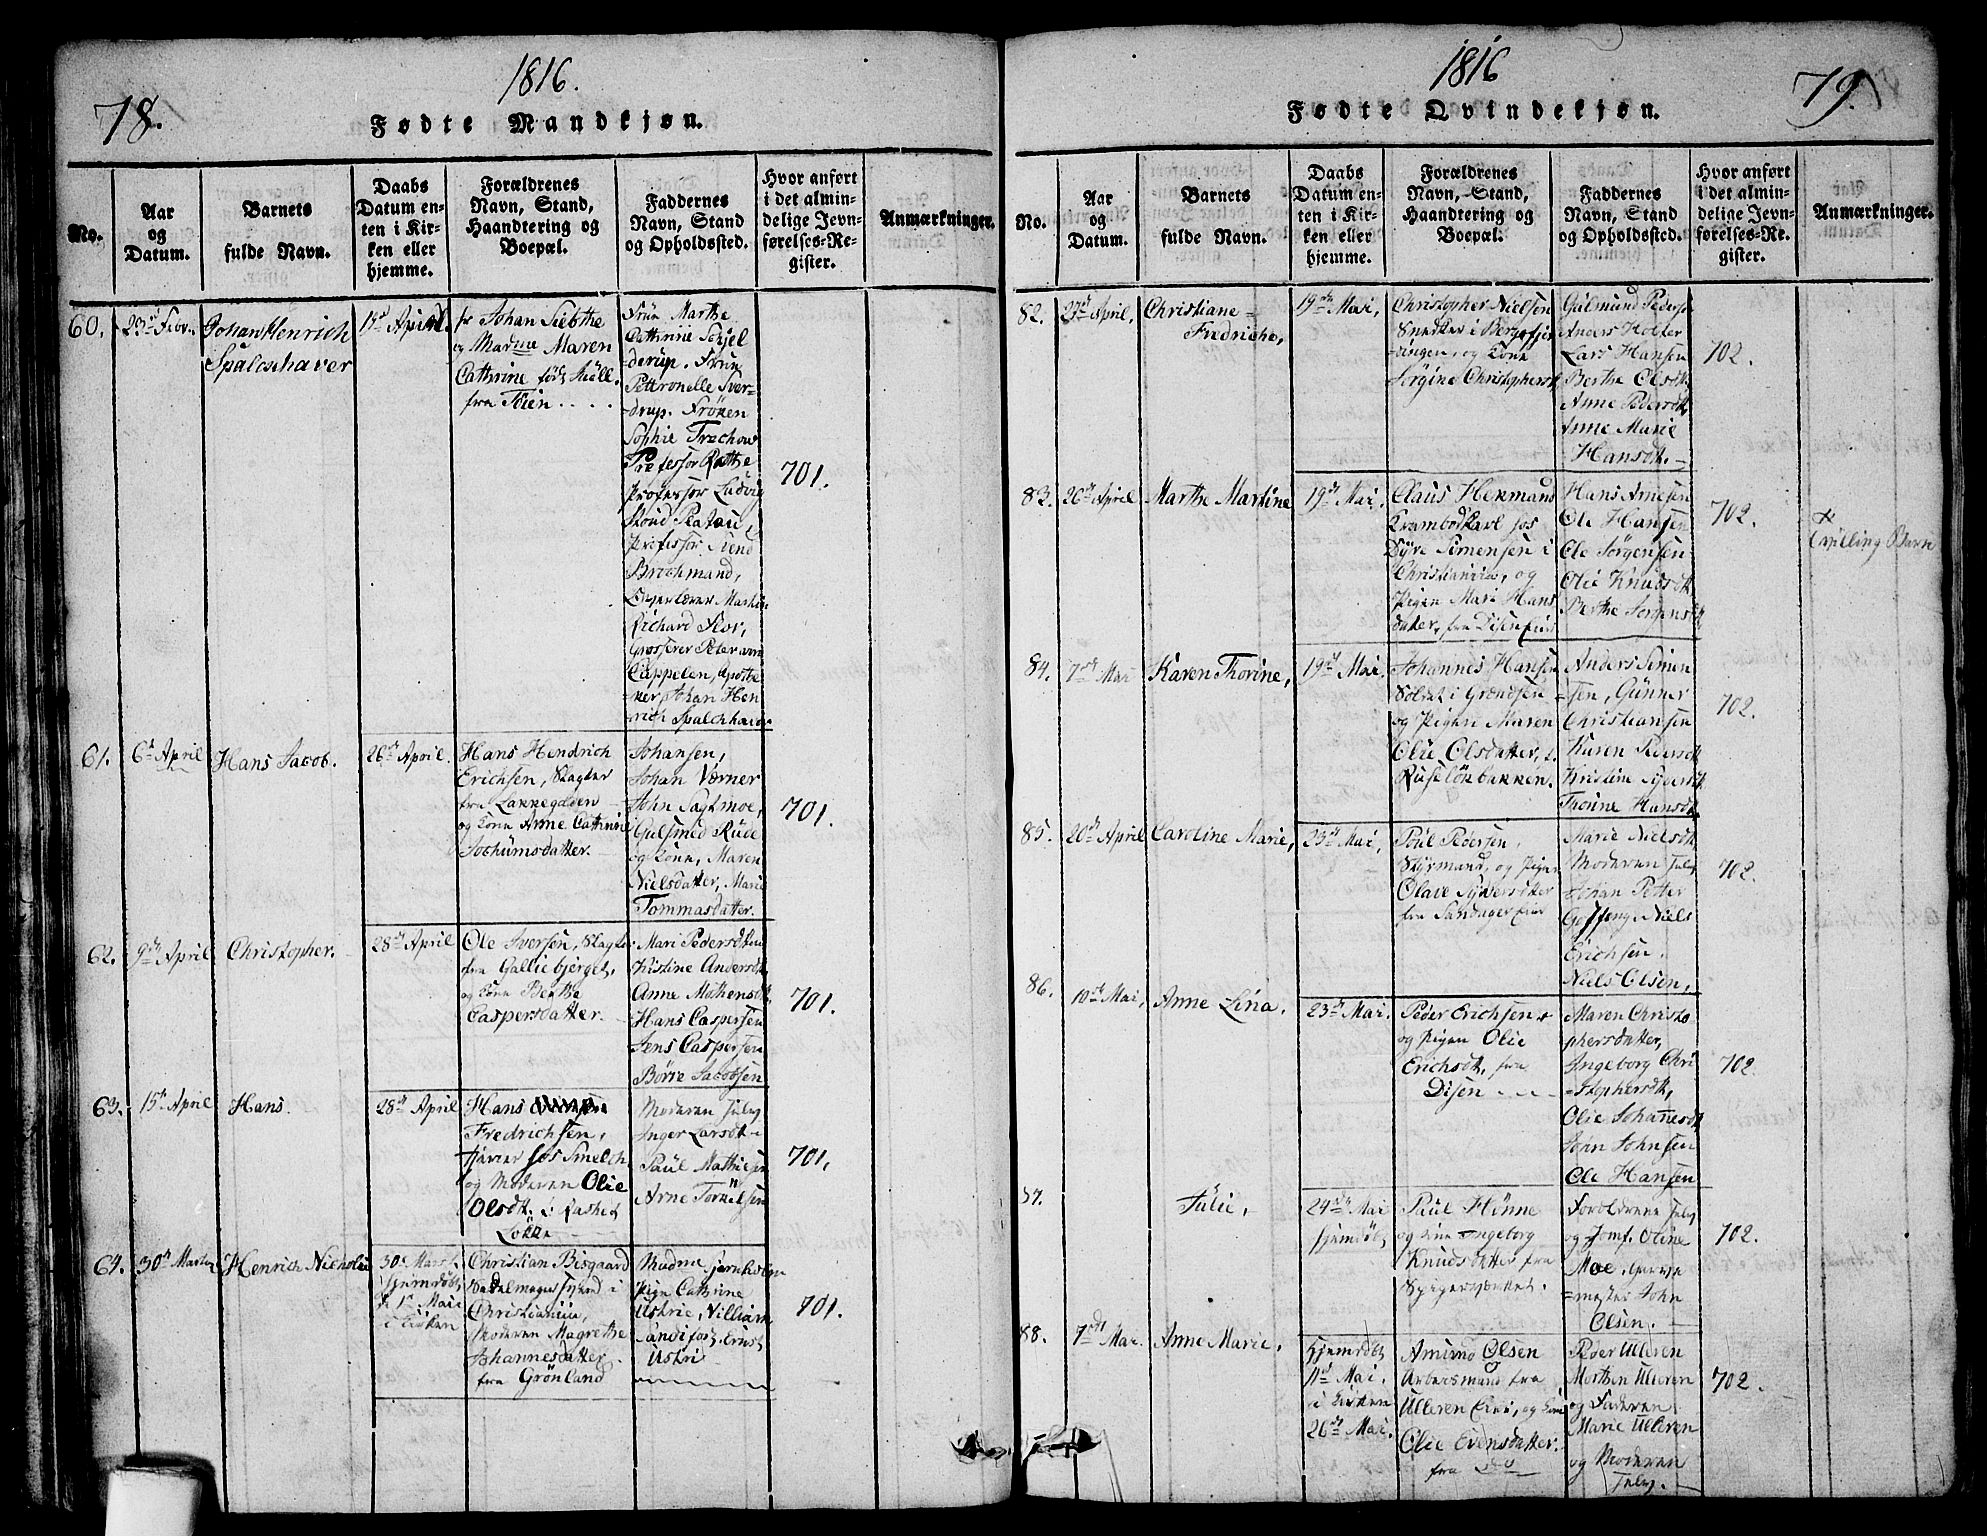 1816.
78.
Fødte Mandkjøn.
No.
Aar
og
Datum.
Barnets
fulde Navn.
Daabs
Datum en-
ten i Kir-
ken eller
hjemme.
Forældrenes
Navn, Stand,
Haandtering og
Boepæl.
Faddernes
Navn, Stand
og Opholdssted.
Hvor anført
i det almin-
delige Jevn-
førelses-Re-
gister.
Anmærkninger.
60.
23de Febr.
Johan Henrich
Spalchhaver
April
Johan Siebthe
og Madme Maren
Cathrine født
fra Töien
Früe Marthe
Cathrine Schjel
derup. Früe
Petronelle Sver-
drup. Fröken
Sophie Treschow
Professor Rathe
Professor Ludvig
Stoud Platou,
Professor Svend
Brochmand,
Overlærer Martin
Richard Flor,
Grosserer Peter von
Cappelen, Apothe
ker Johan Hen
rich Spalchhaver
701.
61.
6te April
Hans Jacob.
26de April.
Hans Hendrich
Erichsen, Slagter
fra Lakkegaden
og Kone Anne Cathrine
Jochumsdatter.
Johansen,
Johan Værner
John Sagtmoe,
Gulsmed Rüde
og Kone, Maren
Nielsdatter, Marie
Tommasdatter.
701.
62.
9de April
Christopher.
28de April
Ole Iversen, Slagter
fra Galliebjerget,
og Kone Berthe
Caspersdatter.
Mari Pedersdtter
Kistine Andersdt
Anne Mathensdt
Hans Caspersen
Jens Caspersen
Börre Jacobsen
701.
63.
15de April
Hans.
28de April
Hans
Fredrichsen,
tjener hos Smelch
og Moderen Olie
Olsdt. i Rasched
Løkke
Moderen Selv
Inger Larsdt
Paul Mathiesen
Arne Torkelsen
701.
64.
30de Martz
Henrich Nicholai
30te Marts
hjemdöbt,
d. 1te Mai
i Kirken
Christian Bisgaard
Sadelmagersvend i
Christiania,
Moderen Magrethe
Johannesdatter
fra Grönland
Madme Jernholm
Pige Cathrine
Ustrie, Villiam
Sandifort, Ernst
Ustri
701.
1816
79.
Fødte Qvindekjøn.
No.
Aar
og
Datum.
Barnets
fulde Navn.
Daabs
Datum en-
ten i Kir-
ken eller
hjemme.
Forældrenes
Navn, Stand,
Haandtering og
Boepæl.
Faddernes
Navn, Stand
og Opholdssted.
Hvor anført
i det almin-
delige Jevn-
førelses-Re-
gister.
Anmærkninger.
82.
27de April,
Christiane
Fredricke,
19de Mai,
Christopher Nielsen
Snedker i Bergsfjer
dingen, og Kone
Jørgine Christophersdt
Gulmund Peders
Anders Holter
Lars Hansen
Berthe Olsdt.
Anne Pedersdt,
Anne Marie
Hansdt.
702.
83.
26de April
Marthe Martine
19de Mai,
Claus Hermand
Krambodkarl hos
Dyre Simensen i
Christiania, og
Pigen Mari Hans
datter, fra Disen Eier
Hans Arnesen
Ole Hansen
Ole Jörgensen
Olie Knudsdt
Berthe Jorgensdt
702.
Tvilling Barn
84.
7de Mai
Karen Thorine,
19de Mai.
Johannes Hansen
Soldat i Grændsen
og Pigen Maren
Olie Olsdatter, f.
Ruseløkbakken.
Anders Simen
sen, Günner
Christiansen
Karen Pedersdt
Kristine
Thorine Hansdt
702.
85.
20de April
Caroline Marie,
23de Mai,
Poul Pedersen,
Styrmand, og Pigen
Olave Syversdatter
fra Sandager Eier
Marie Nielsdt
Moderen Selv
Johan Petter
Niels
Erichsen.
Niels Olsen,
702.
86.
10de Mai,
Anne Lina.
23de Mai.
Peder Erichsen
og Pigen Olie
Erichsdt, fra
Disen
Maren Christo
phersdatter,
Ingeborg Chri
stophersdt,
Olie Johanesdt
John Johnsen
Ole Hansen
702.
87.
Julie,
24de Mai
hjemdöbt,
Paul Hönne
og Kone Ingeborg
Knudsdatter fra
Spigerværket.
Foreldrene Selv
og Jomf. Oline
Moe,
mester John
Olsen.
702.
88.
7de Mai.
Anne Marie,
hjemdöbt
11te Mai.
i Kirken
26de Mai.
Amund Olsen
Arbeismand fra
Ulleren Eier, og Kone
Olie Evensdatter.
fra Do
Peder Ulleren
Morthen Ulleren
og Faderen
Marie Ulleren
og Moderen
Selv.
702.